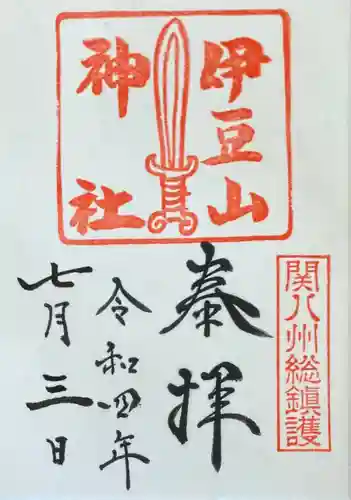 伊豆山
神社
関八州総鎮護
奉拝
令和四年
七月三日